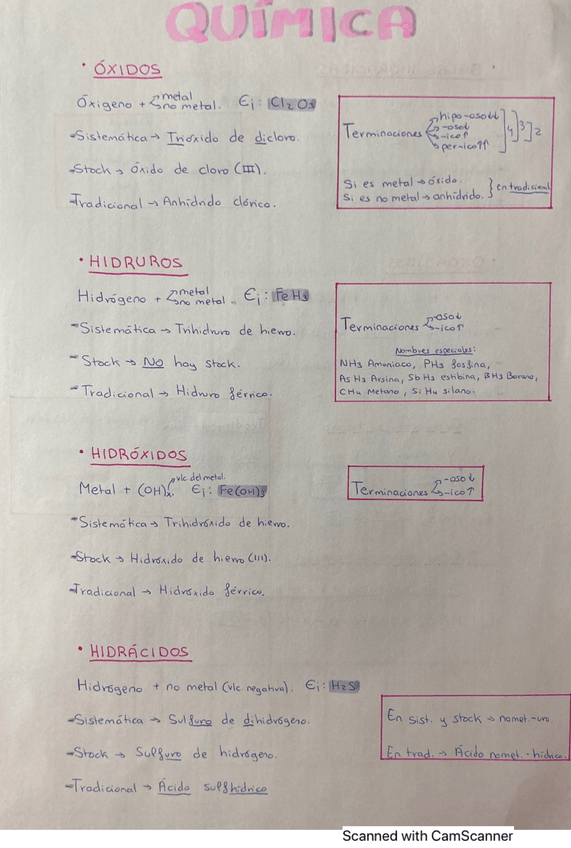 QUÍMICA
• ÓXIDOS
Óxigeno + metal
no metal. Ej: Cl2O3
Terminaciones hipo-oso↓↓
-oso↓
-ico↑
per-ico↑↑
4 3 2
- Sistemática → Trióxido de dicloro.
- Stock → Óxido de cloro (III).
- Tradicional → Anhídrido clórico.
Si es metal → óxido.
Si es no metal → anhídrido. } en tradicional
• HIDRUROS
Hidrógeno + metal
no metal. Ej: FeH3
- Sistemática → Trihidruro de hierro.
- Stock → No hay stock.
- Tradicional → Hidruro férrico.
Terminaciones -oso↓
-ico↑
Nombres especiales:
NH3 Amoniaco, PH3 fosfina,
AsH3 Arsina, SbH3 estibina, BH3 Borano,
CH4 Metano, SiH4 silano.
• HIDRÓXIDOS
Metal + (OH)x. vlc del metal. Ej: Fe(OH)3
Terminaciones -oso↓
-ico↑
- Sistemática → Trihidróxido de hierro.
- Stock → Hidróxido de hierro (III).
- Tradicional → Hidróxido férrico.
• HIDRÁCIDOS
Hidrógeno + no metal (vlc negativa). Ej: H2S
- Sistemática → Sulfuro de dihidrógeno.
- Stock → Sulfuro de hidrógeno.
- Tradicional → Ácido sulfhídrico
En sist. y stock → nomet.-uro.
En trad. → Ácido nomet.-hídrico.
Scanned with CamScanner